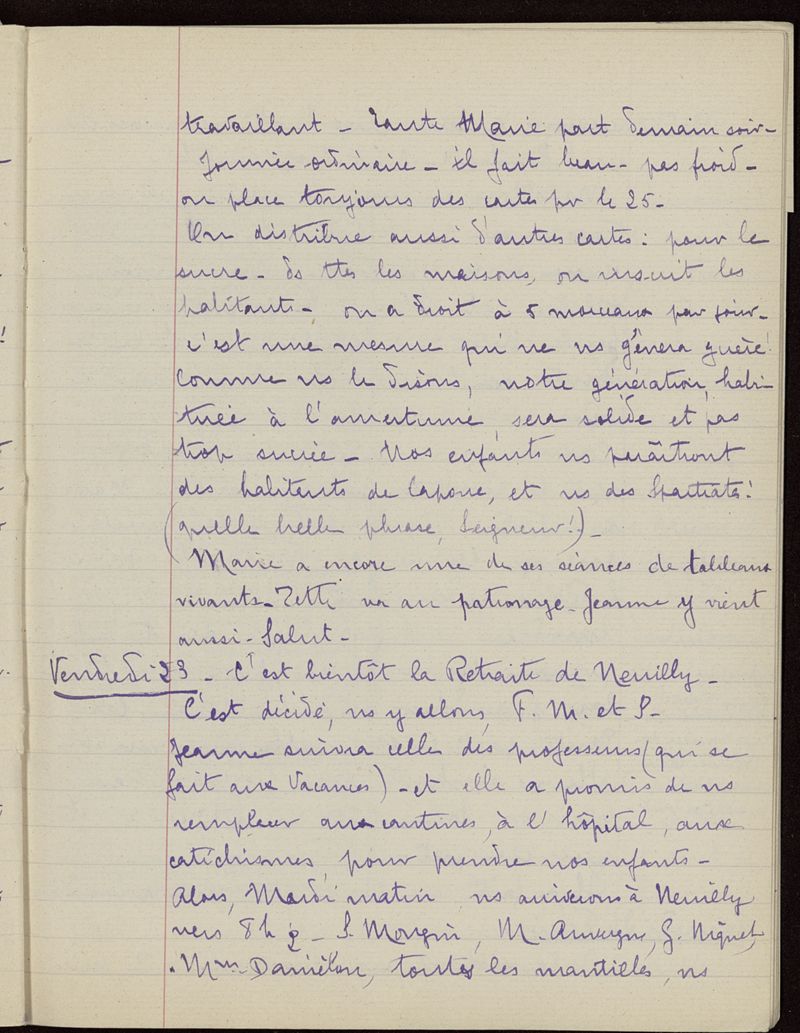 travaillant - Tante Marie part demain soir -
Journée ordinaire - il fait beau - pas froid -
on place toujours des cartes pr le 25 -
On distribue aussi d'autres cartes : pour le
sucre - ds ttes les maisons, on inscrit les
habitants - on a droit à 5 morceaux par jour -
c'est une mesure qui ne ns gênera guère !
Comme ns le disons, notre génération, habi-
tuée à l'amertume, sera solide et pas
trop sucrée - Nos enfants ns paraîtront
des habitants de Capoue, et ns des Spartiates !
(quelle belle phrase, Seigneur !) -
Marie a encore une de ses séances de tableaux
vivants - Tetti va au patronage - Jeanne y vient
aussi - Salut -
Vendredi 23 - C'est bientôt la Retraite de Neuilly -
C'est décidé, ns y allons, F. M. et S -
Jeanne suivra celle des professeurs (qui se
fait aux Vacances) - et elle a promis de ns
remplacer aux cantines, à l'hôpital, aux
catéchismes, pour prendre nos enfants -
Alors, Mardi matin, ns arriverons à Neuilly
vers 8h ½ - S. Mongin, M. Auvergne, G. Niquet,
Mme Daniélou, toutes les mantilles, ns